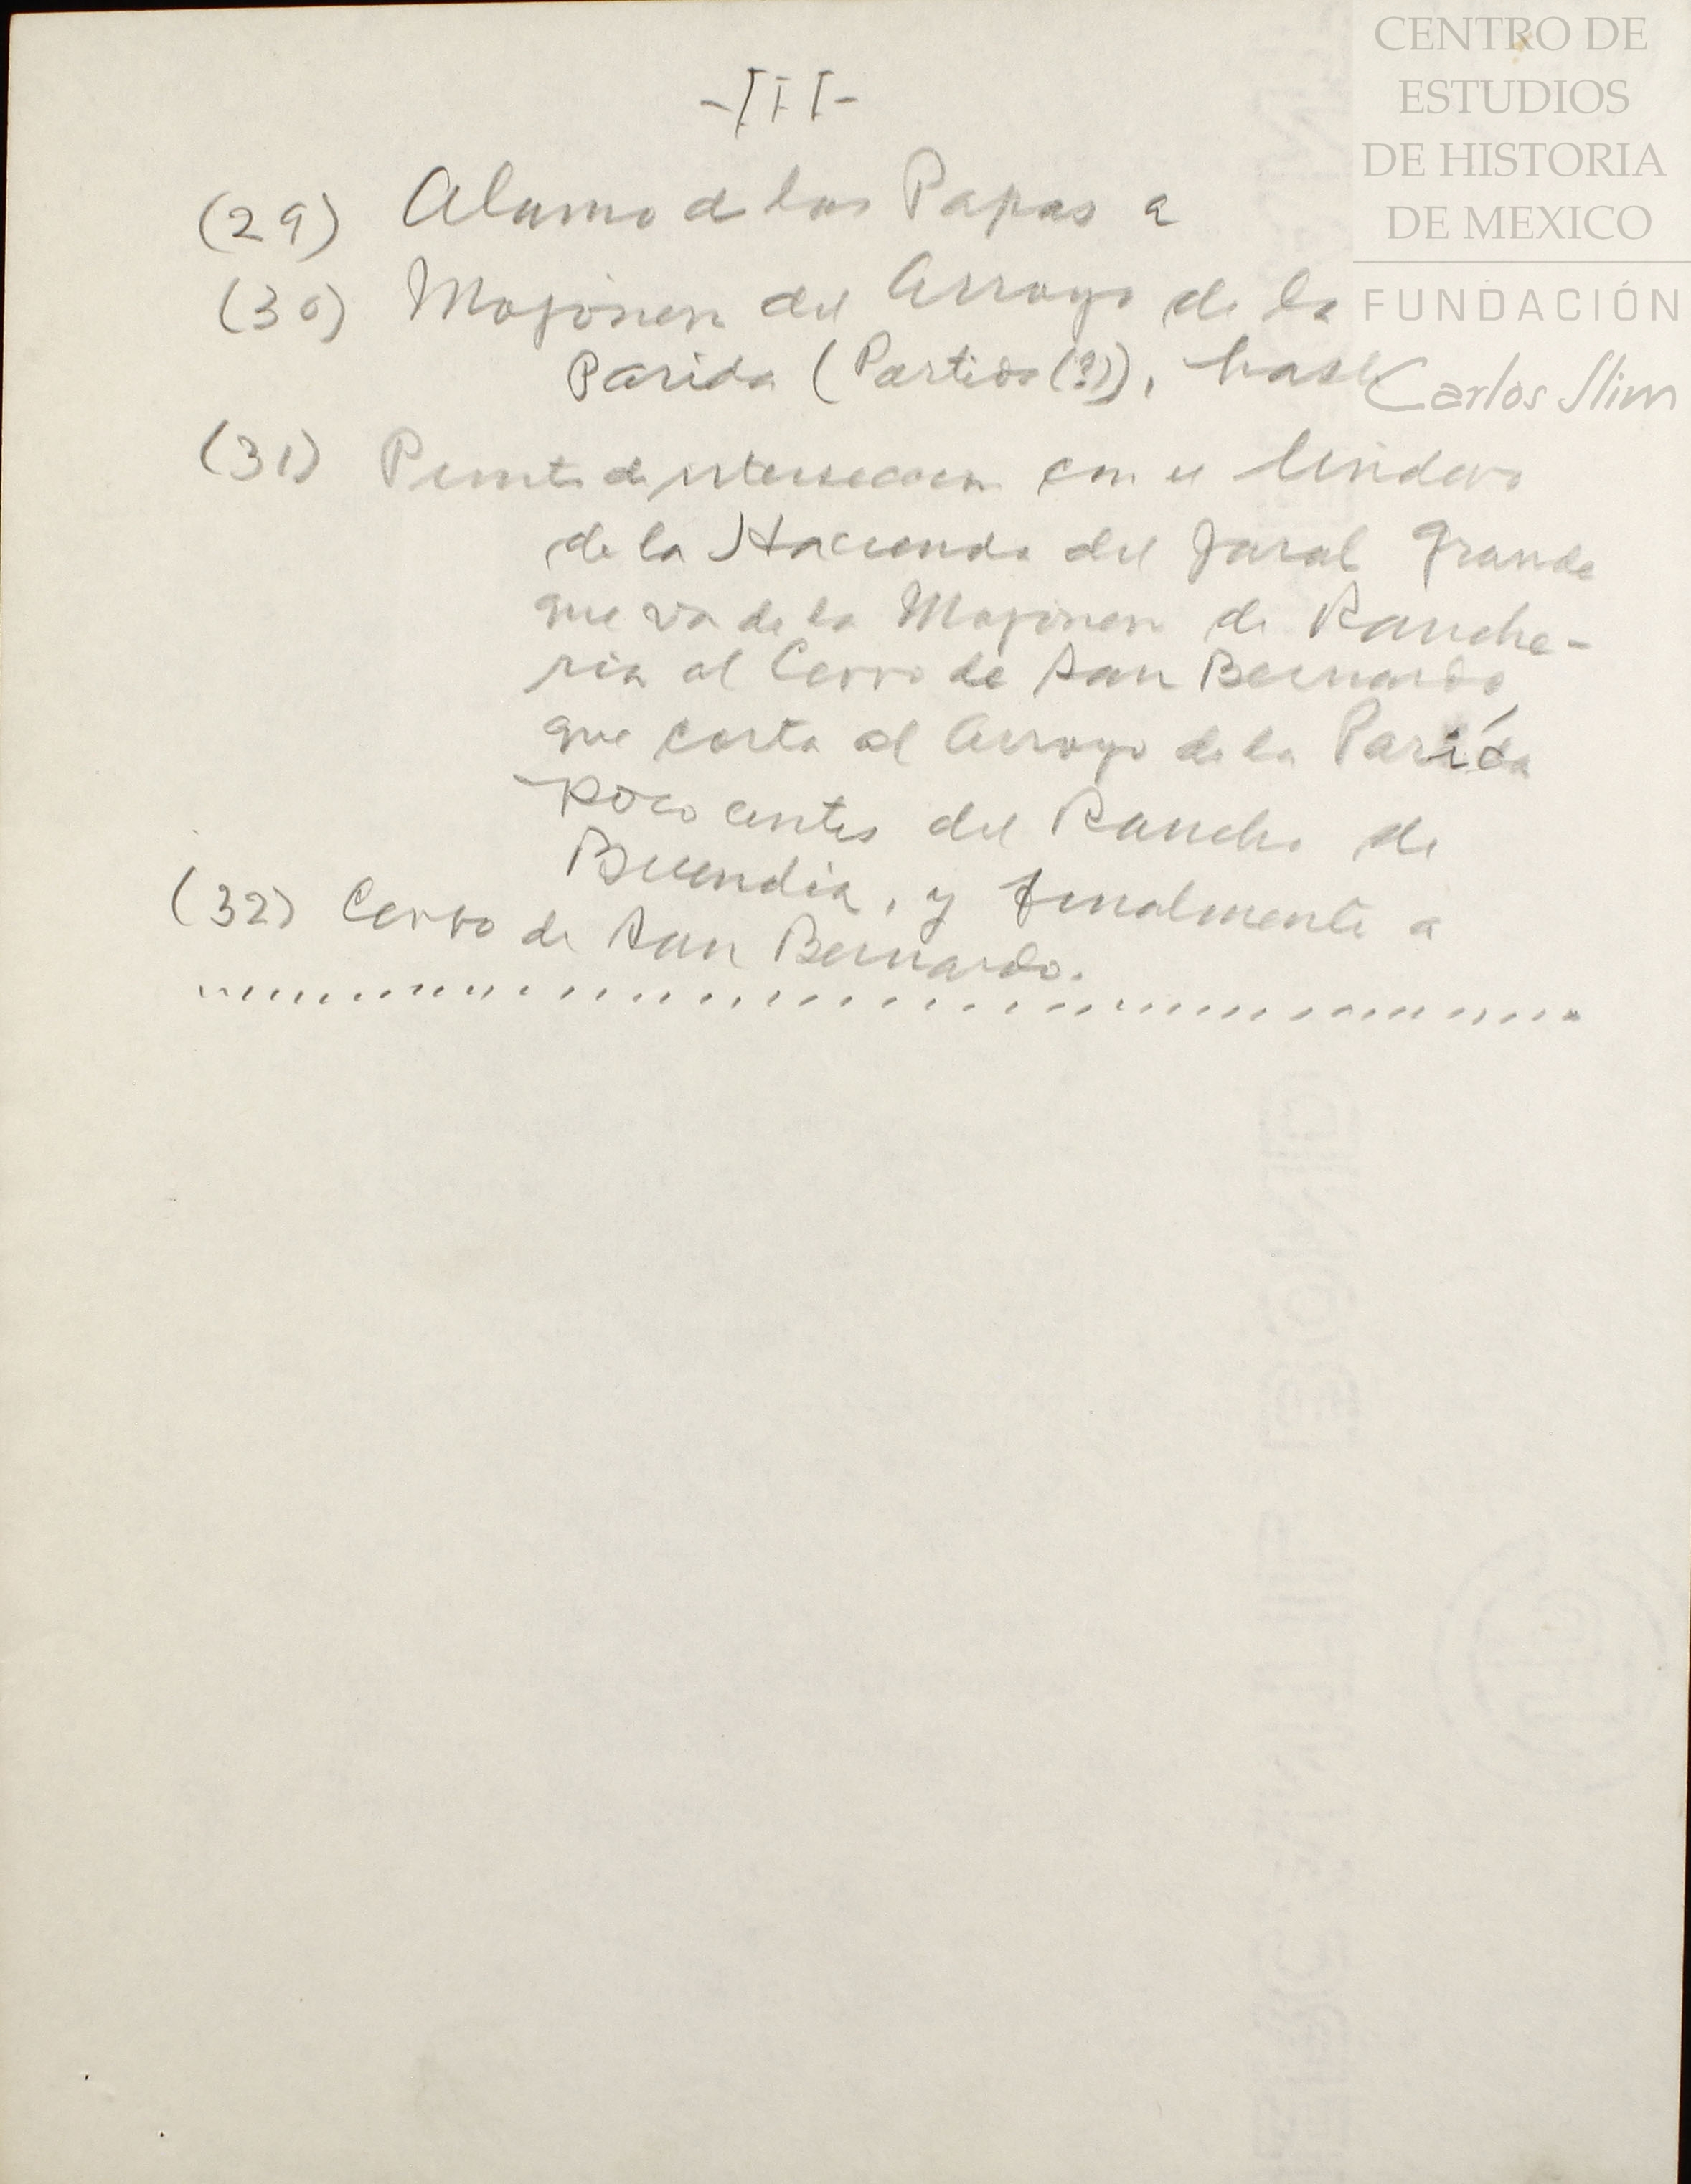 CENTRO DE
ESTUDIOS
DE HISTORIA
DE MEXICO
FUNDACIÓN
Carlos Slim
-III-
(29) Alamo de las Papas a
(30) Mojonera del Arroyo de la
Parida (Partida(?)), hasta
(31) Punto de intersección con el lindero
de la Hacienda del Jaral Grande
que va de la Mojonera de Ranche-
ria al Cerro de San Bernardo,
que corta al Arroyo de la Parida
poco antes del Rancho de
Buendia, y finalmente a
(32) Cerro de San Bernardo.